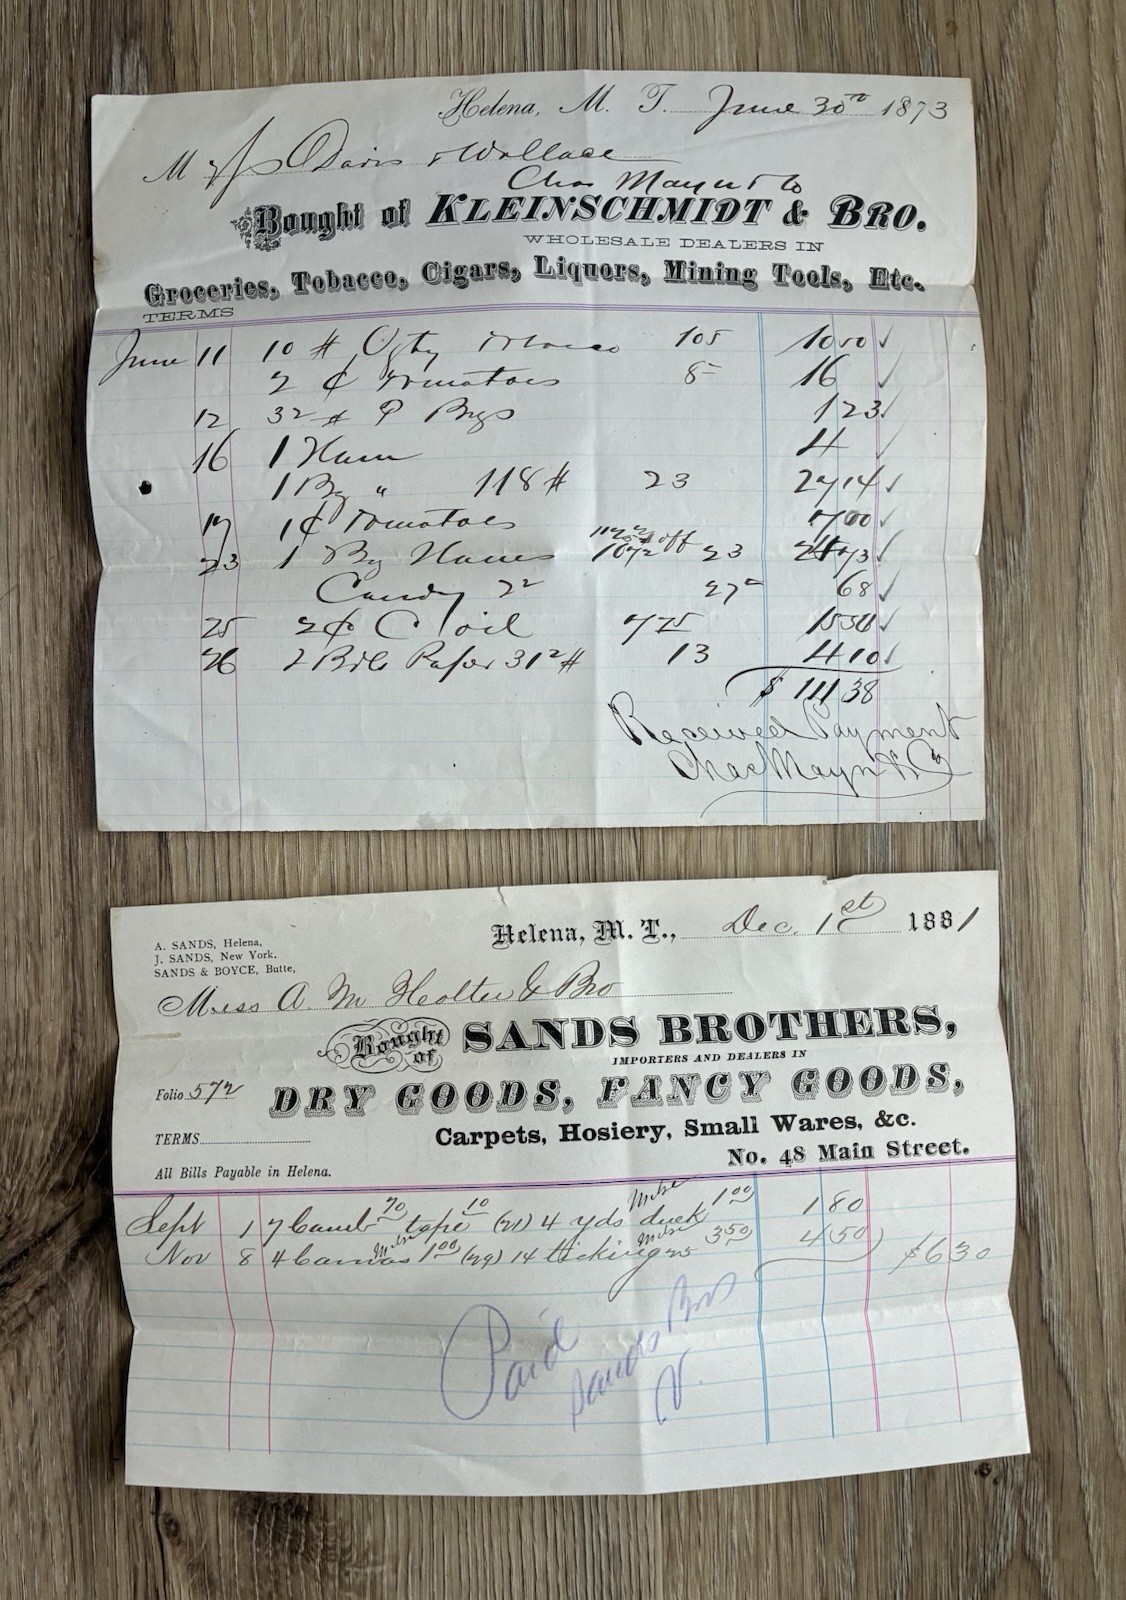 Helena, M. T. June 30th 1873
M Davis & Wallace
Chas Mayn & Co
Bought of KLEINSCHMIDT & BRO.
WHOLESALE DEALERS IN
Groceries, Tobacco, Cigars, Liquors, Mining Tools, Etc.
TERMS
June 11 10 # 105 10 50
2 ¢ Tomatoes 8- 16
12 32 # 1 23
16 1 Ham 4
1 " 118 # 23 27 14
17 1 ¢ Tomatoes 7 00
23 1 off 23 73
Candy 2 2 68
25 2 ¢ C oil 7 75 15 50
26 2 Paper 31 2 # 13 4 10
$ 111 38
Received Payment
Chas Mayn & Co
A. SANDS, Helena,
J. SANDS, New York.
SANDS & BOYCE, Butte,
Helena, M. T., Dec. 1st 1881
Mess A. M Holter & Bro
Bought of SANDS BROTHERS,
IMPORTERS AND DEALERS IN
Folio 572
DRY GOODS, FANCY GOODS,
Carpets, Hosiery, Small Wares, &c.
TERMS
No. 48 Main Street.
All Bills Payable in Helena.
Sept 1 7 Camb 70 tape 10 (21) 4 yds duck 1 00 1 80
Nov 8 4 Canvas 1 00 (29) 14 ticking 3 50 4 50 $6 30
Paid
Sands Bros